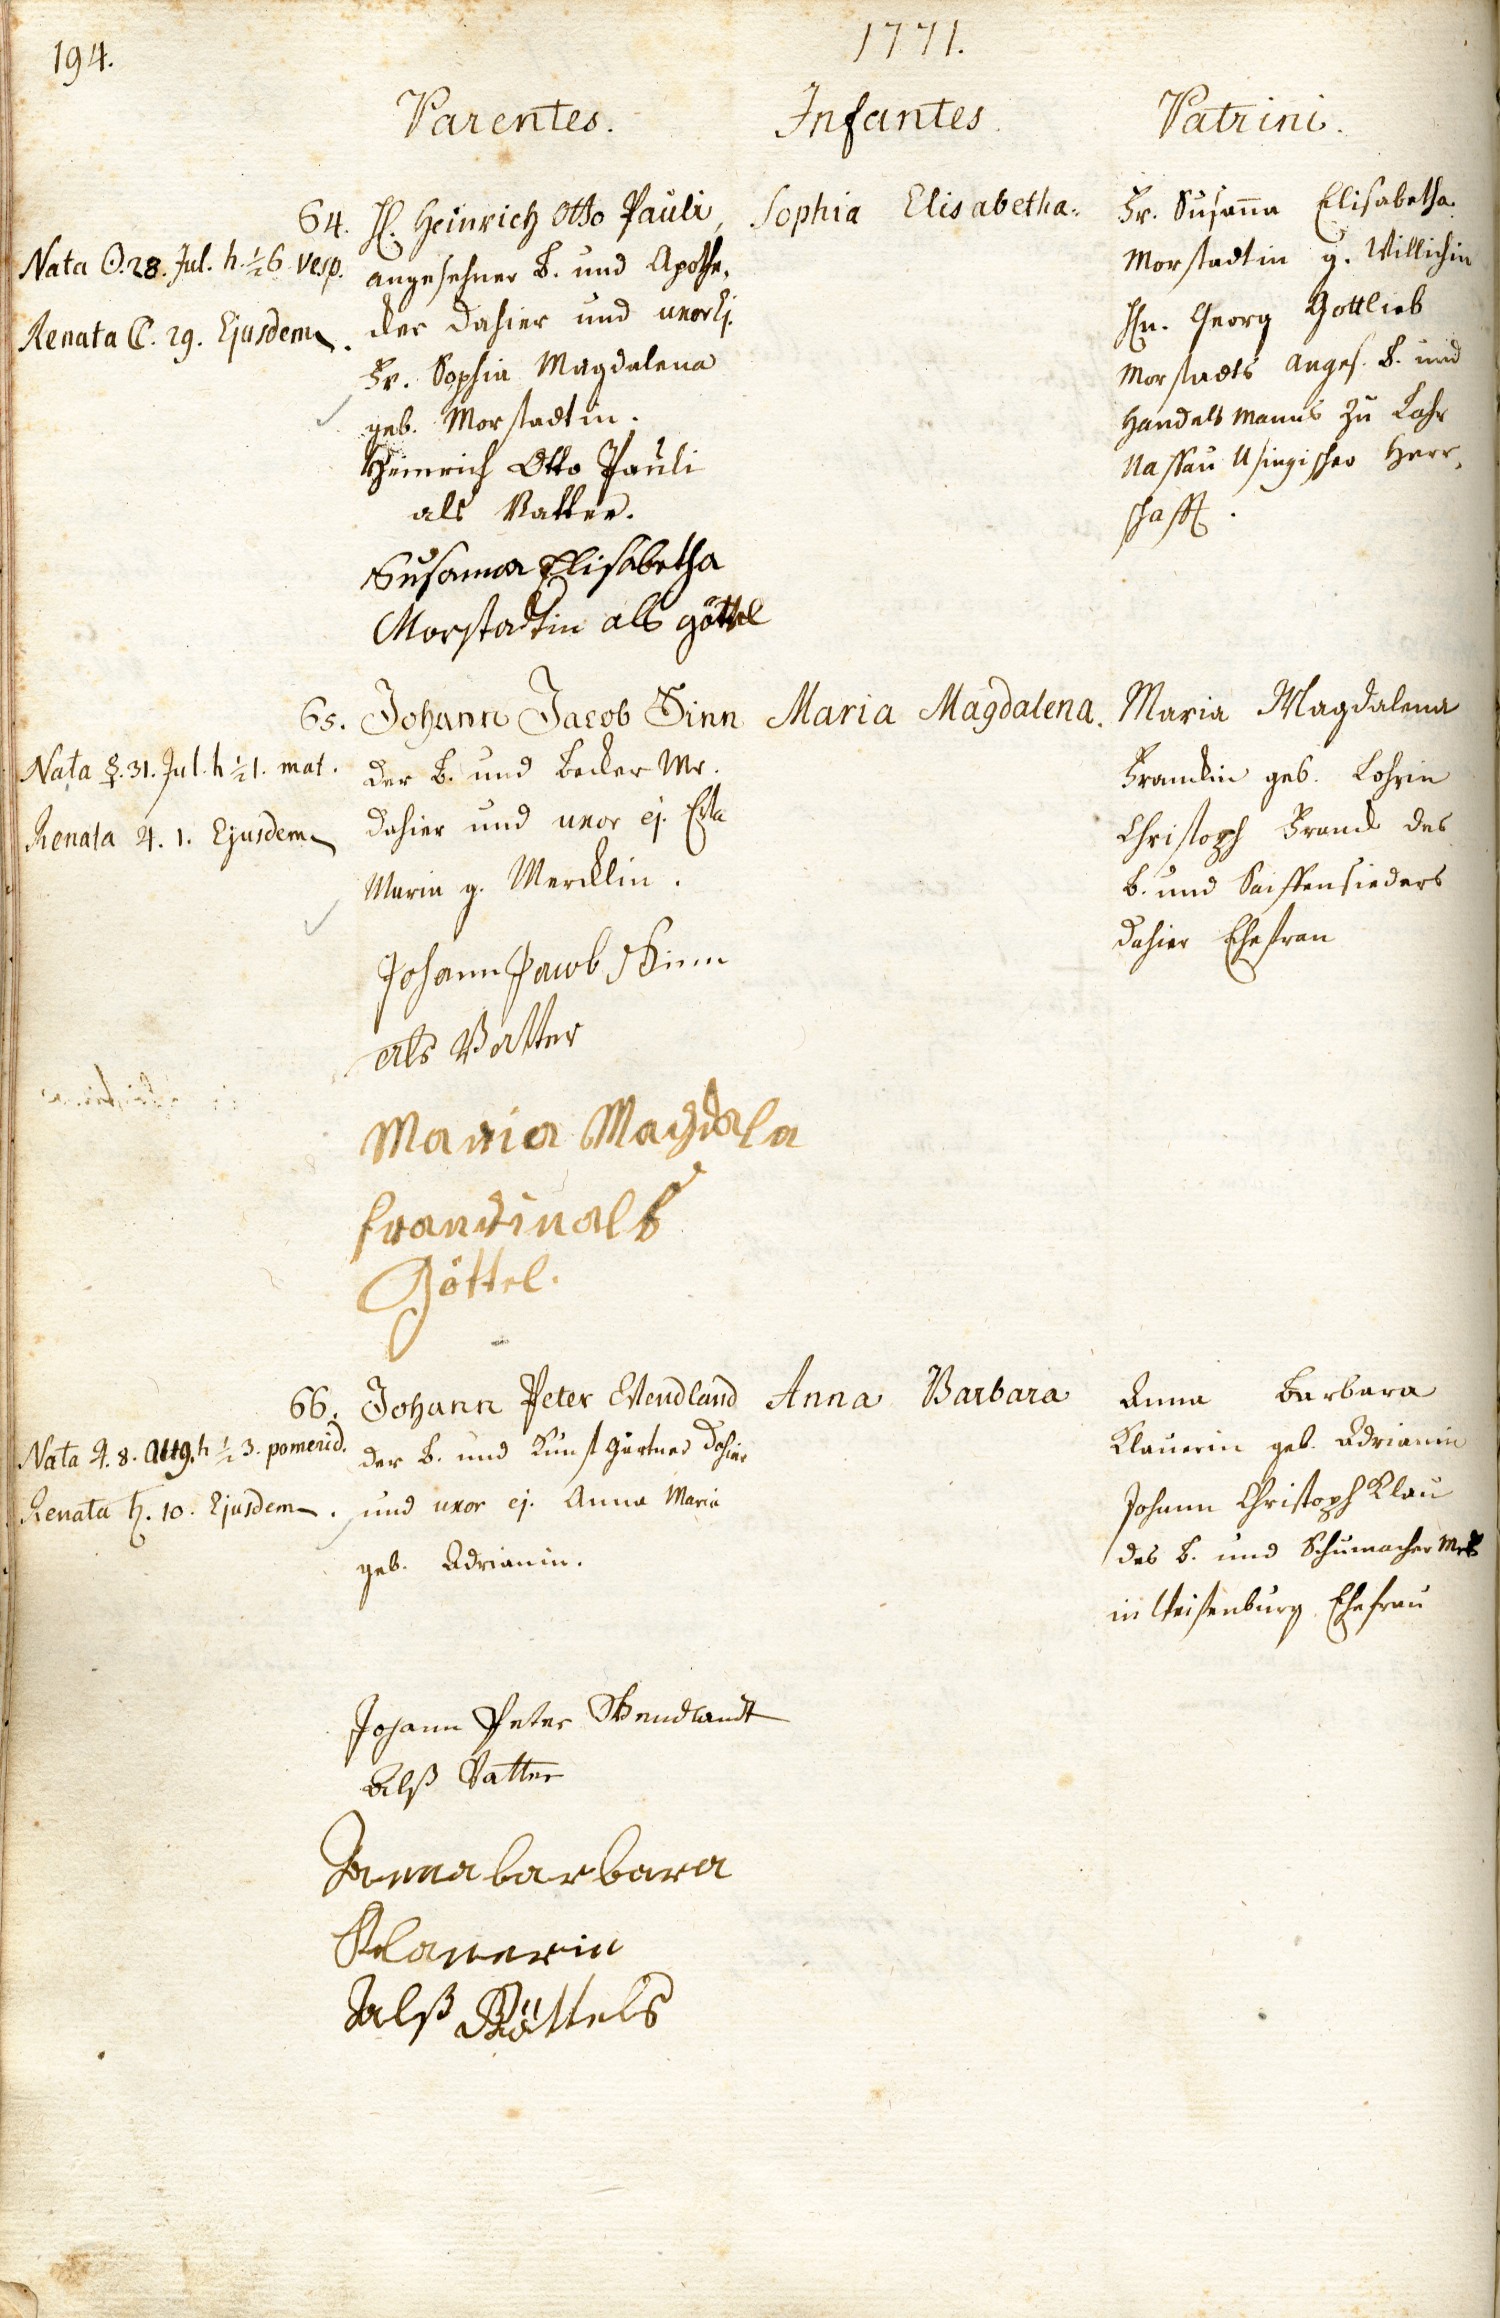 194.
1771.
Parentes. Infantes. Patrini.
64. H. Heinrich Otto Pauli, Sophia Elisabetha. Fr. Susan̄a Elisabetha
Nata ☉. 28. Jul. h. ½6 vesp. angesehner B. und Apothe, Morstadtin g. Willichin
Renata ☾. 29. Ejusdem. cker dahier und uxor ej. Hn. Georg Gottlieb
Fr. Sophia Magdalena Morstadts anges. B. und
geb. Morstadtin. Handelsmanns zu Lahr
Heinrich Otto Pauli Nassau Usingischer Herr,
als Vatter. schafft.
Susanna Elisabetha
Morstadtin als göttel
65. Johann Jacob Sinn Maria Magdalena. Maria Magdalena
Nata ☿. 31. Jul. h ½1. mat. der B. und Becker Mr. Franckin geb. Lohrin
Renata ♃. 1. Ejusdem dahier und uxor ej. Eva Christoph Franck des
Maria g. Mercklin. B. und Saiffensieders
dahier Ehefrau
Johann Jacob Sinn
als Vatter
Maria Magdala
franckin als
Göttel.
66. Johann Peter Wendland Anna Barbara Anna Barbara
Nata ♃. 8. Aug. h ½ 3. pomerid. der B. und Kunst Gärtner dahier Klauerin geb. Adrianin
Renata ♄. 10. Ejusdem. und uxor ej. Anna Maria Johann Christoph Klau
geb. Adrianin. des B. und Schumacher Mrs
in Weisenburg Ehefrau
Johann Peter Wendlandt
Alß Vatter
Anna barbara
Klauerin
Alß Göttels